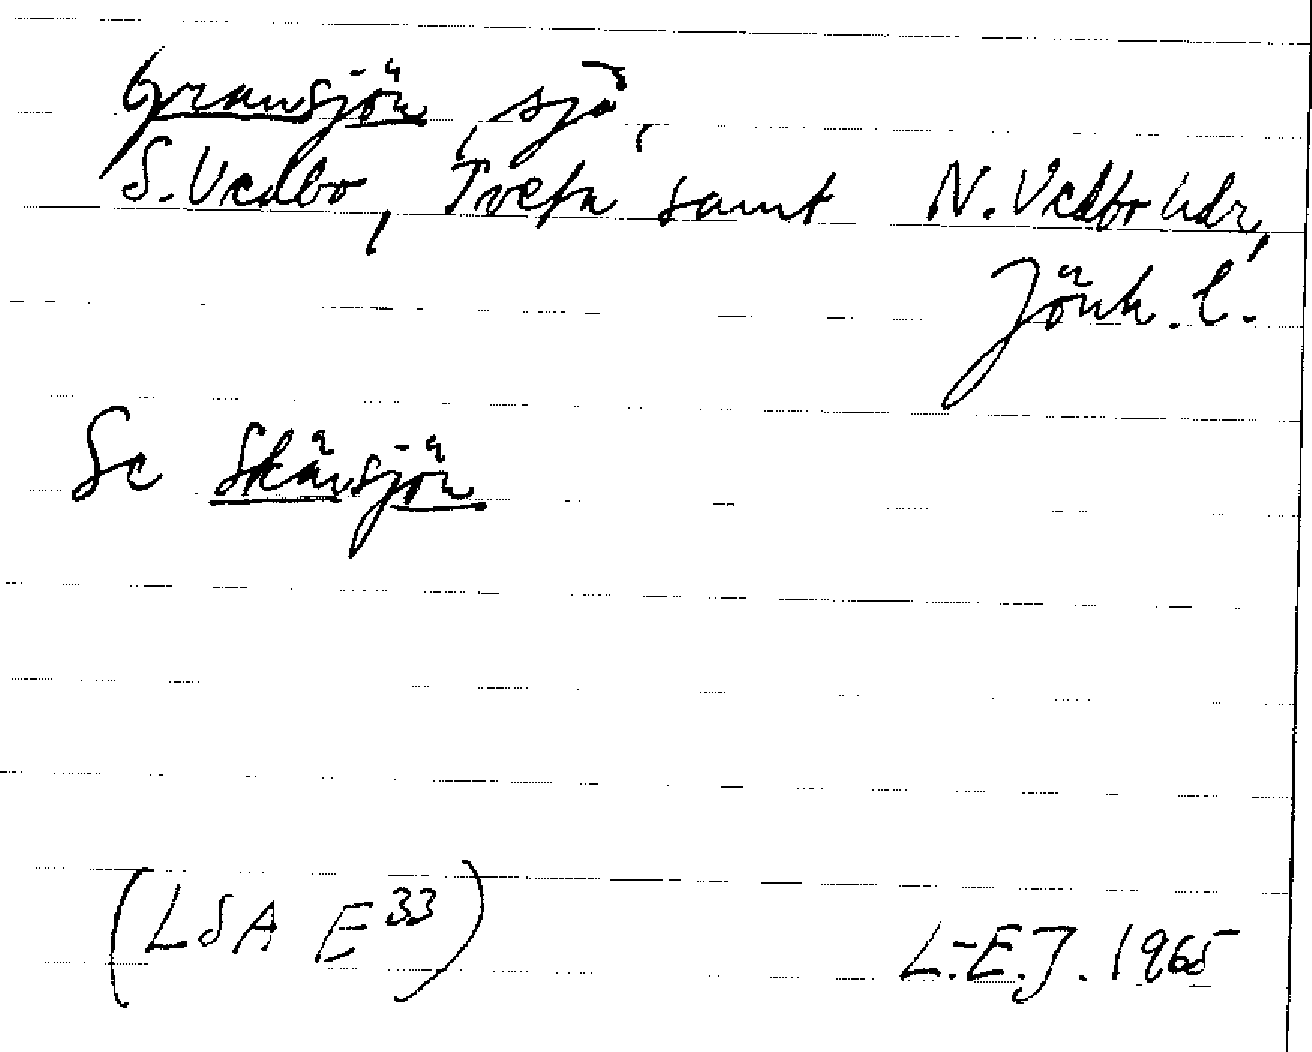 Gransjön, sjö,
S. Vedbo, Tveta samt N. Vedbo hdr,
Jönk. l.
Se Skärsjön
(LSA E33) L.-E.J. 1965